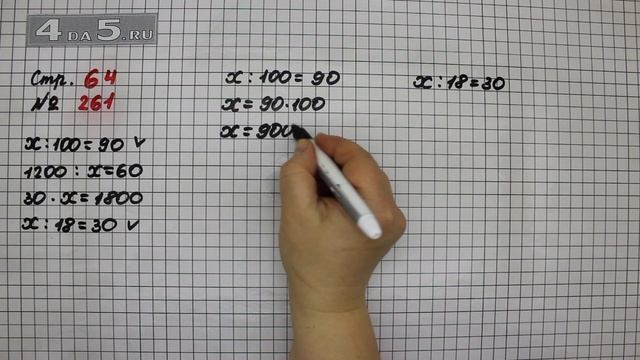 4 DA 5.RU
Стр. 64
№ 261
x : 100 = 90 ✓
1200 : x = 60
30 · x = 1800
x : 18 = 30 ✓
x : 100 = 90
x = 90 · 100
x = 900
x : 18 = 30